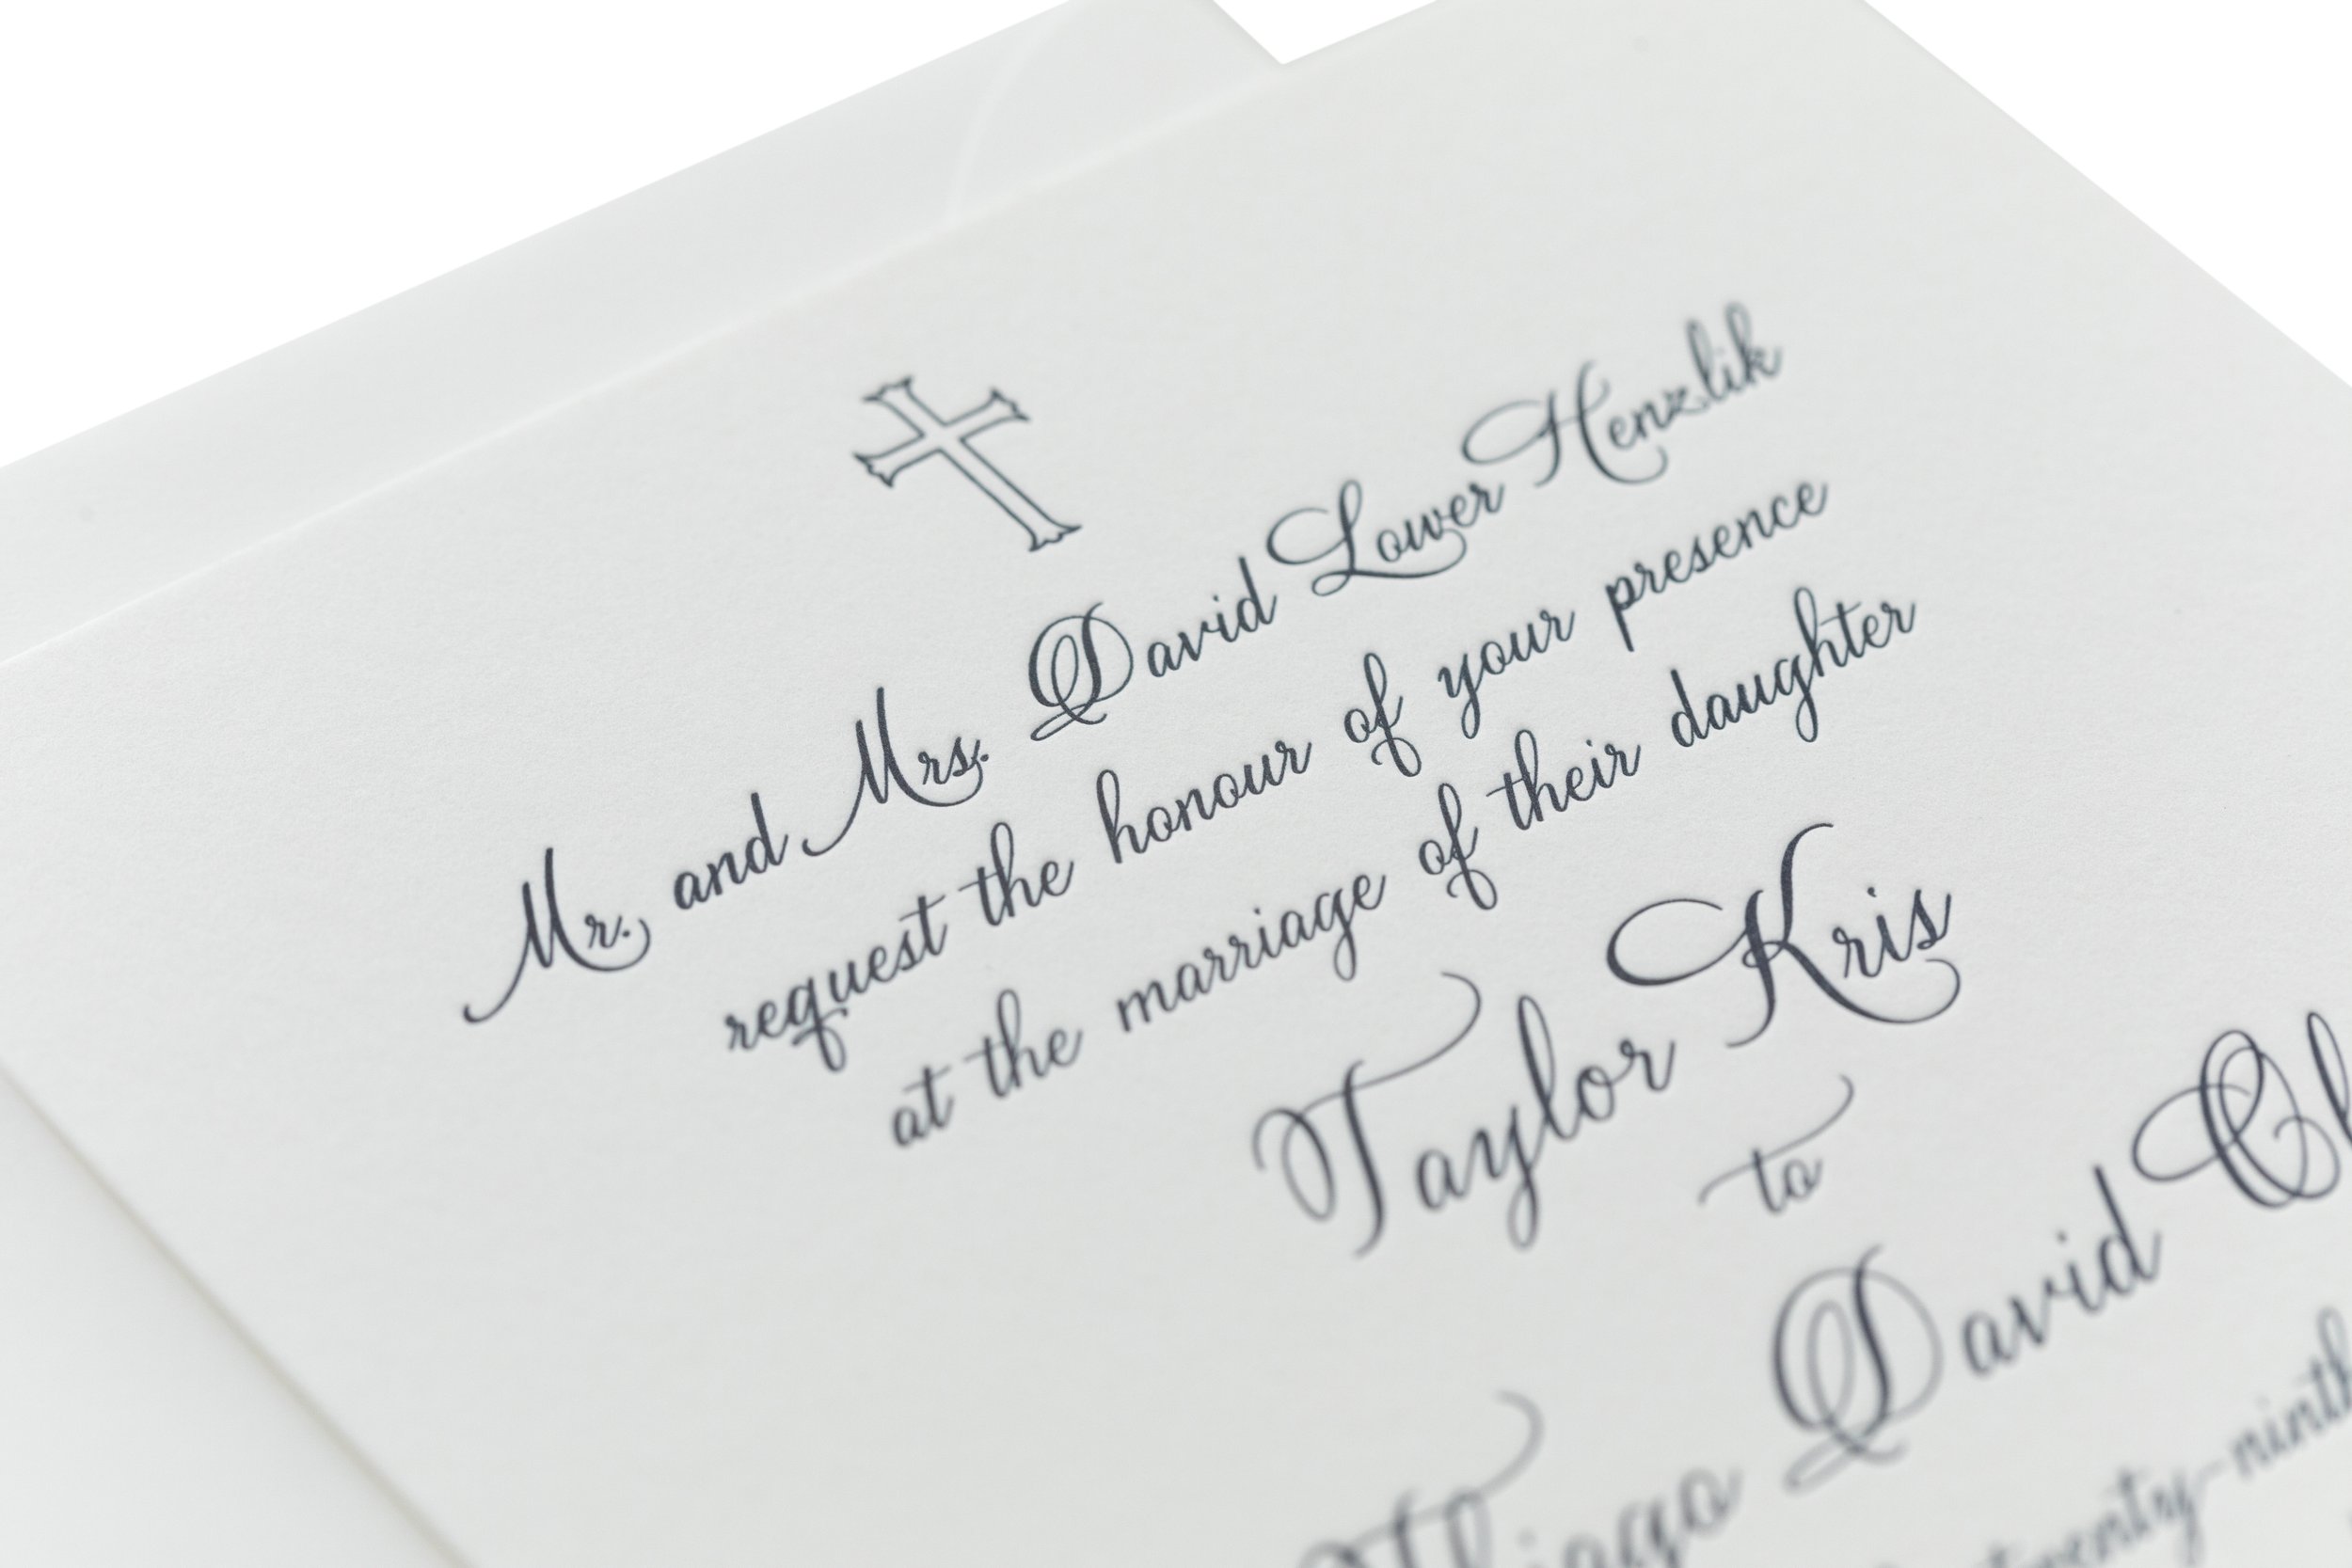 Mr. and Mrs. David Lower Henzlik
request the honour of your presence
at the marriage of their daughter
Taylor Kris
to
Thiago David
twenty-ninth